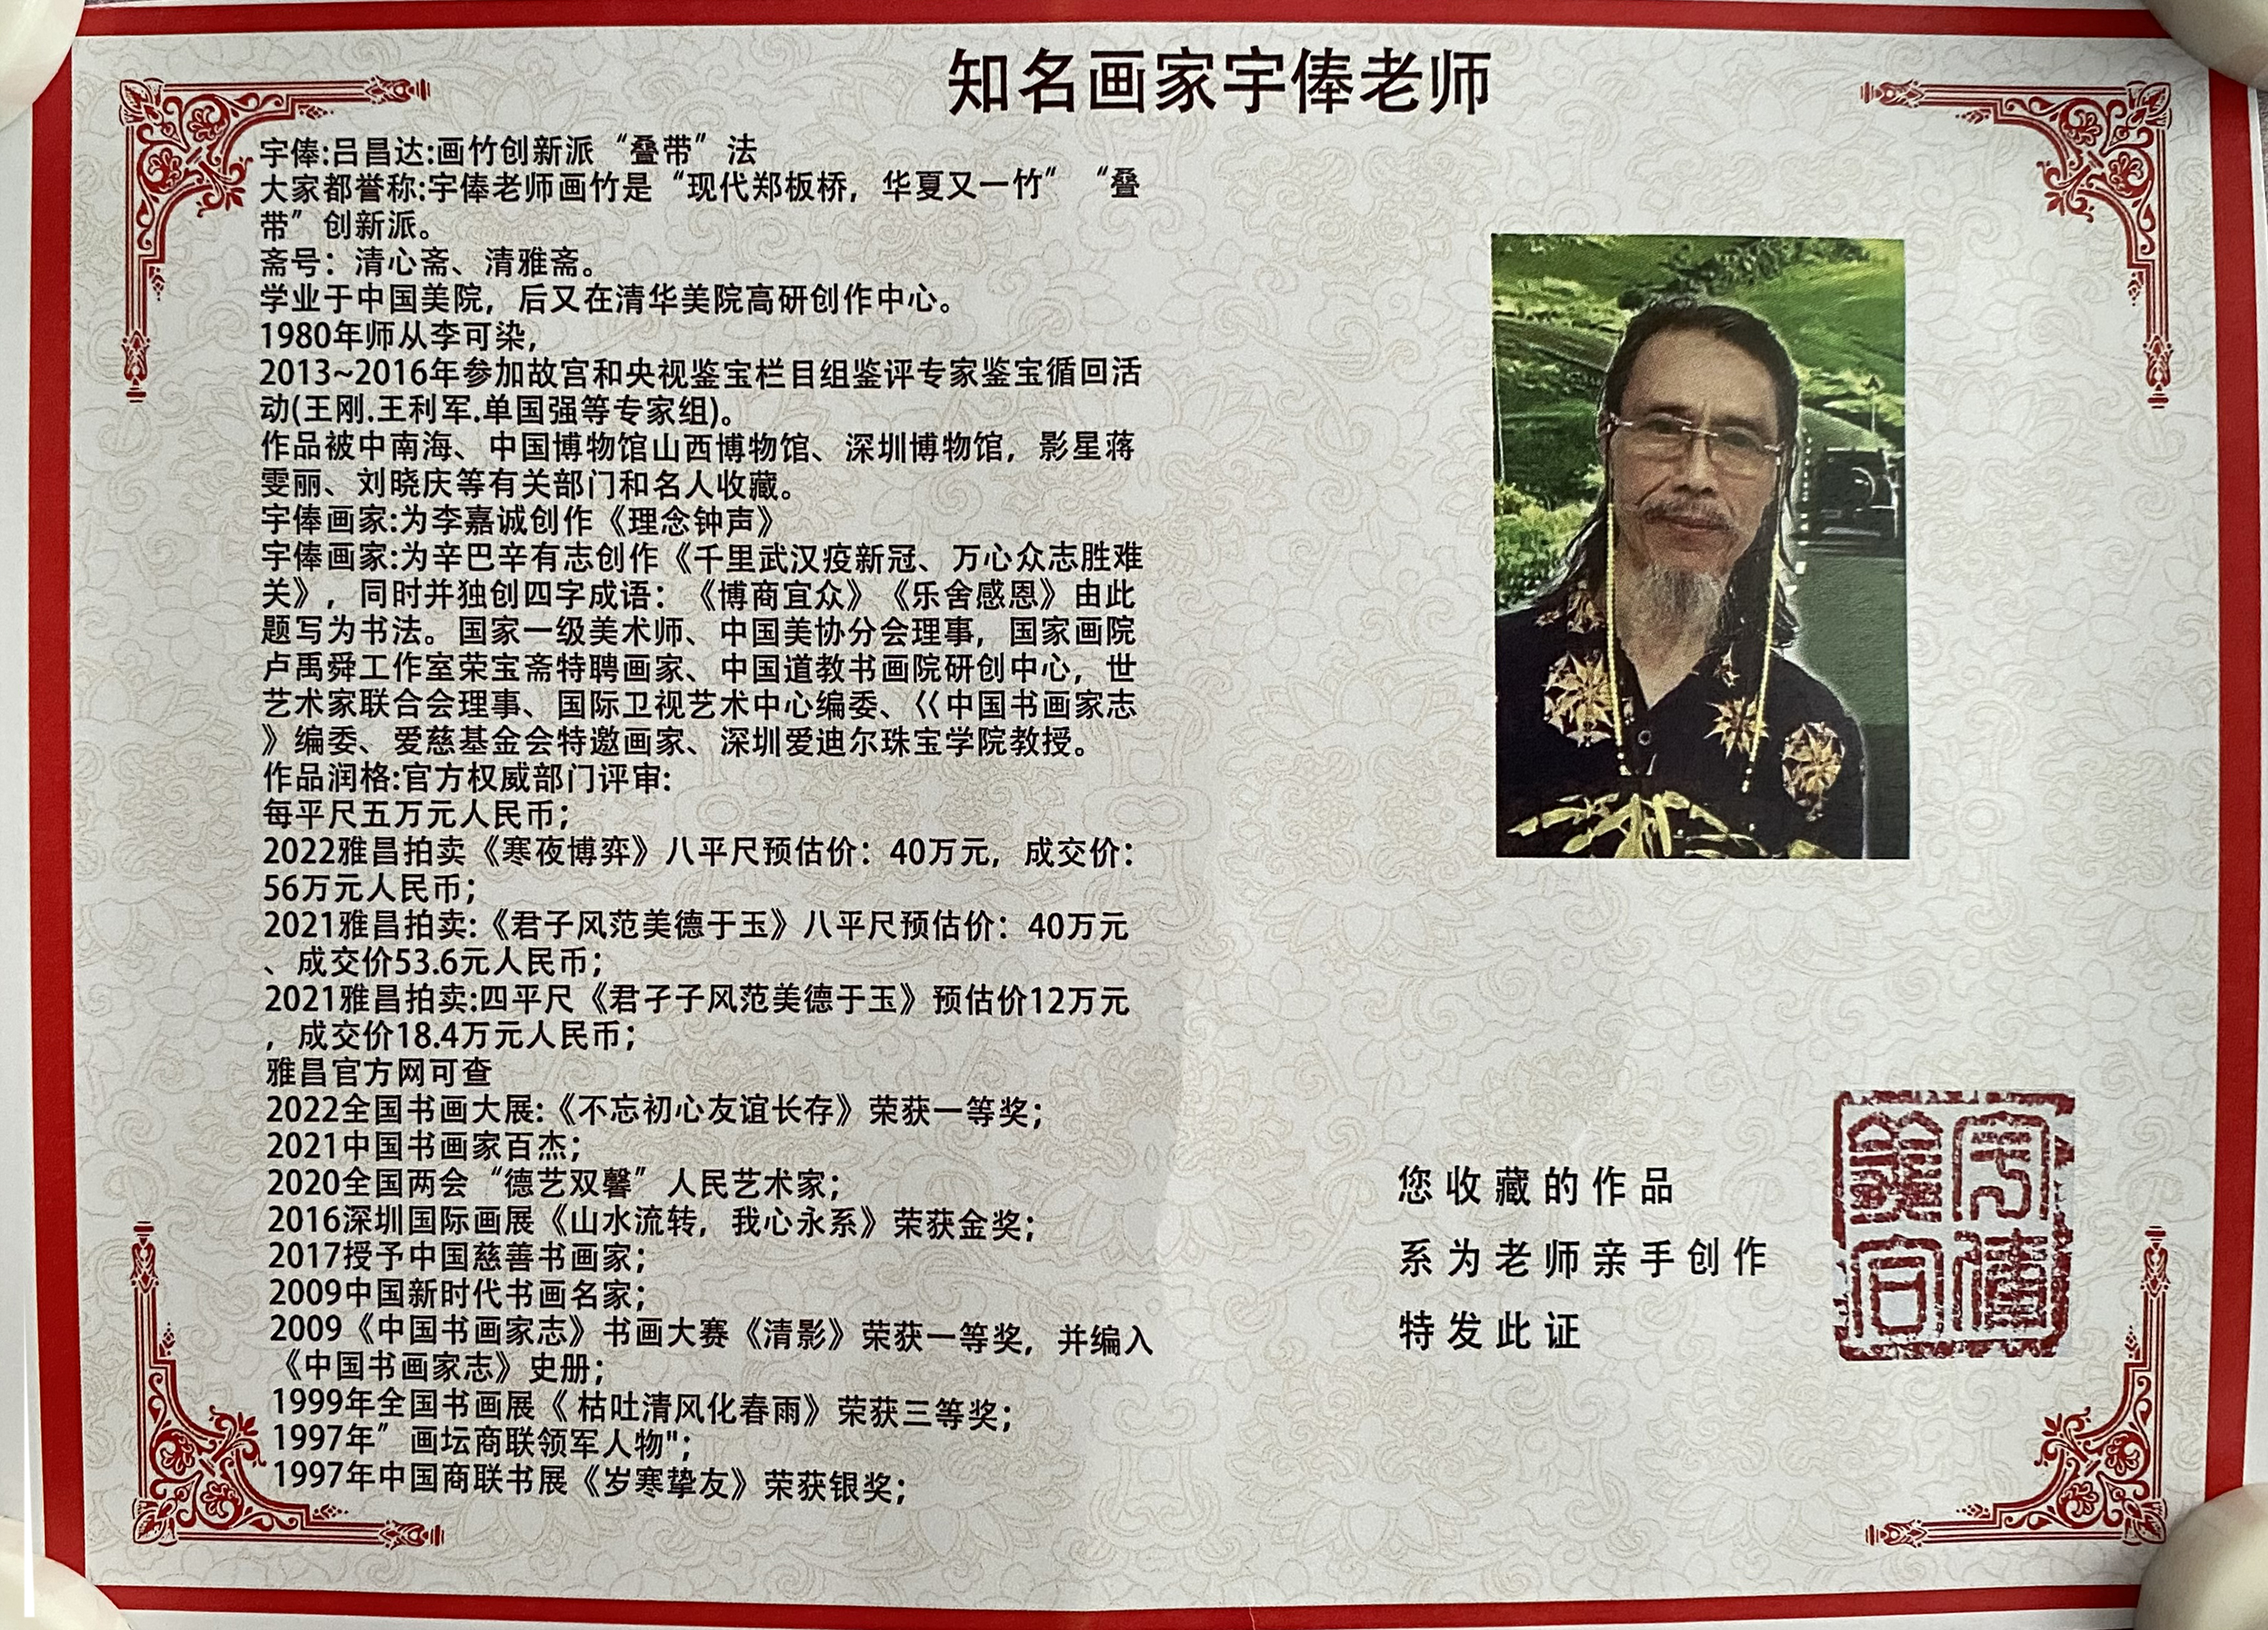 知名画家宇俸老师
宇俸:吕昌达:画竹创新派“叠带”法
大家都誉称:宇俸老师画竹是“现代郑板桥，华夏又一竹”“叠
带”创新派。
斋号：清心斋、清雅斋。
学业于中国美院，后又在清华美院高研创作中心。
1980年师从李可染，
2013~2016年参加故宫和央视鉴宝栏目组鉴评专家鉴宝循回活
动(王刚.王利军.单国强等专家组)。
作品被中南海、中国博物馆山西博物馆、深圳博物馆，影星蒋
雯丽、刘晓庆等有关部门和名人收藏。
宇俸画家:为李嘉诚创作《理念钟声》
宇俸画家:为辛巴辛有志创作《千里武汉疫新冠、万心众志胜难
关》，同时并独创四字成语：《博商宜众》《乐舍感恩》由此
题写为书法。国家一级美术师、中国美协分会理事，国家画院
卢禹舜工作室荣宝斋特聘画家、中国道教书画院研创中心，世
艺术家联合会理事、国际卫视艺术中心编委、巜中国书画家志
》编委、爱慈基金会特邀画家、深圳爱迪尔珠宝学院教授。
作品润格:官方权威部门评审:
每平尺五万元人民币；
2022雅昌拍卖《寒夜博弈》八平尺预估价：40万元，成交价：
56万元人民币；
2021雅昌拍卖:《君子风范美德于玉》八平尺预估价：40万元
、成交价53.6元人民币；
2021雅昌拍卖:四平尺《君孑子风范美德于玉》预估价12万元
，成交价18.4万元人民币；
雅昌官方网可查
2022全国书画大展:《不忘初心友谊长存》荣获一等奖；
2021中国书画家百杰；
2020全国两会“德艺双馨”人民艺术家；
2016深圳国际画展《山水流转，我心永系》荣获金奖；
2017授予中国慈善书画家；
2009中国新时代书画名家；
2009《中国书画家志》书画大赛《清影》荣获一等奖，并编入
《中国书画家志》史册；
1999年全国书画展《 枯吐清风化春雨》荣获三等奖；
1997年”画坛商联领军人物"；
1997年中国商联书展《岁寒挚友》荣获银奖；
您收藏的作品
系为老师亲手创作
特发此证